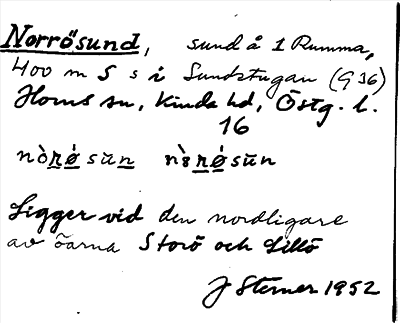 Norrösund, sund å 1 Rumma,
400 m S s i Sundstugan (G 36)
Horns sn, Kinda hd, Östg. l.
16
nòrǿ sūn nɤ̀rǿsūn
Ligger vid den nordligare
av öarna Storö och Lillö
J Sterner 1952